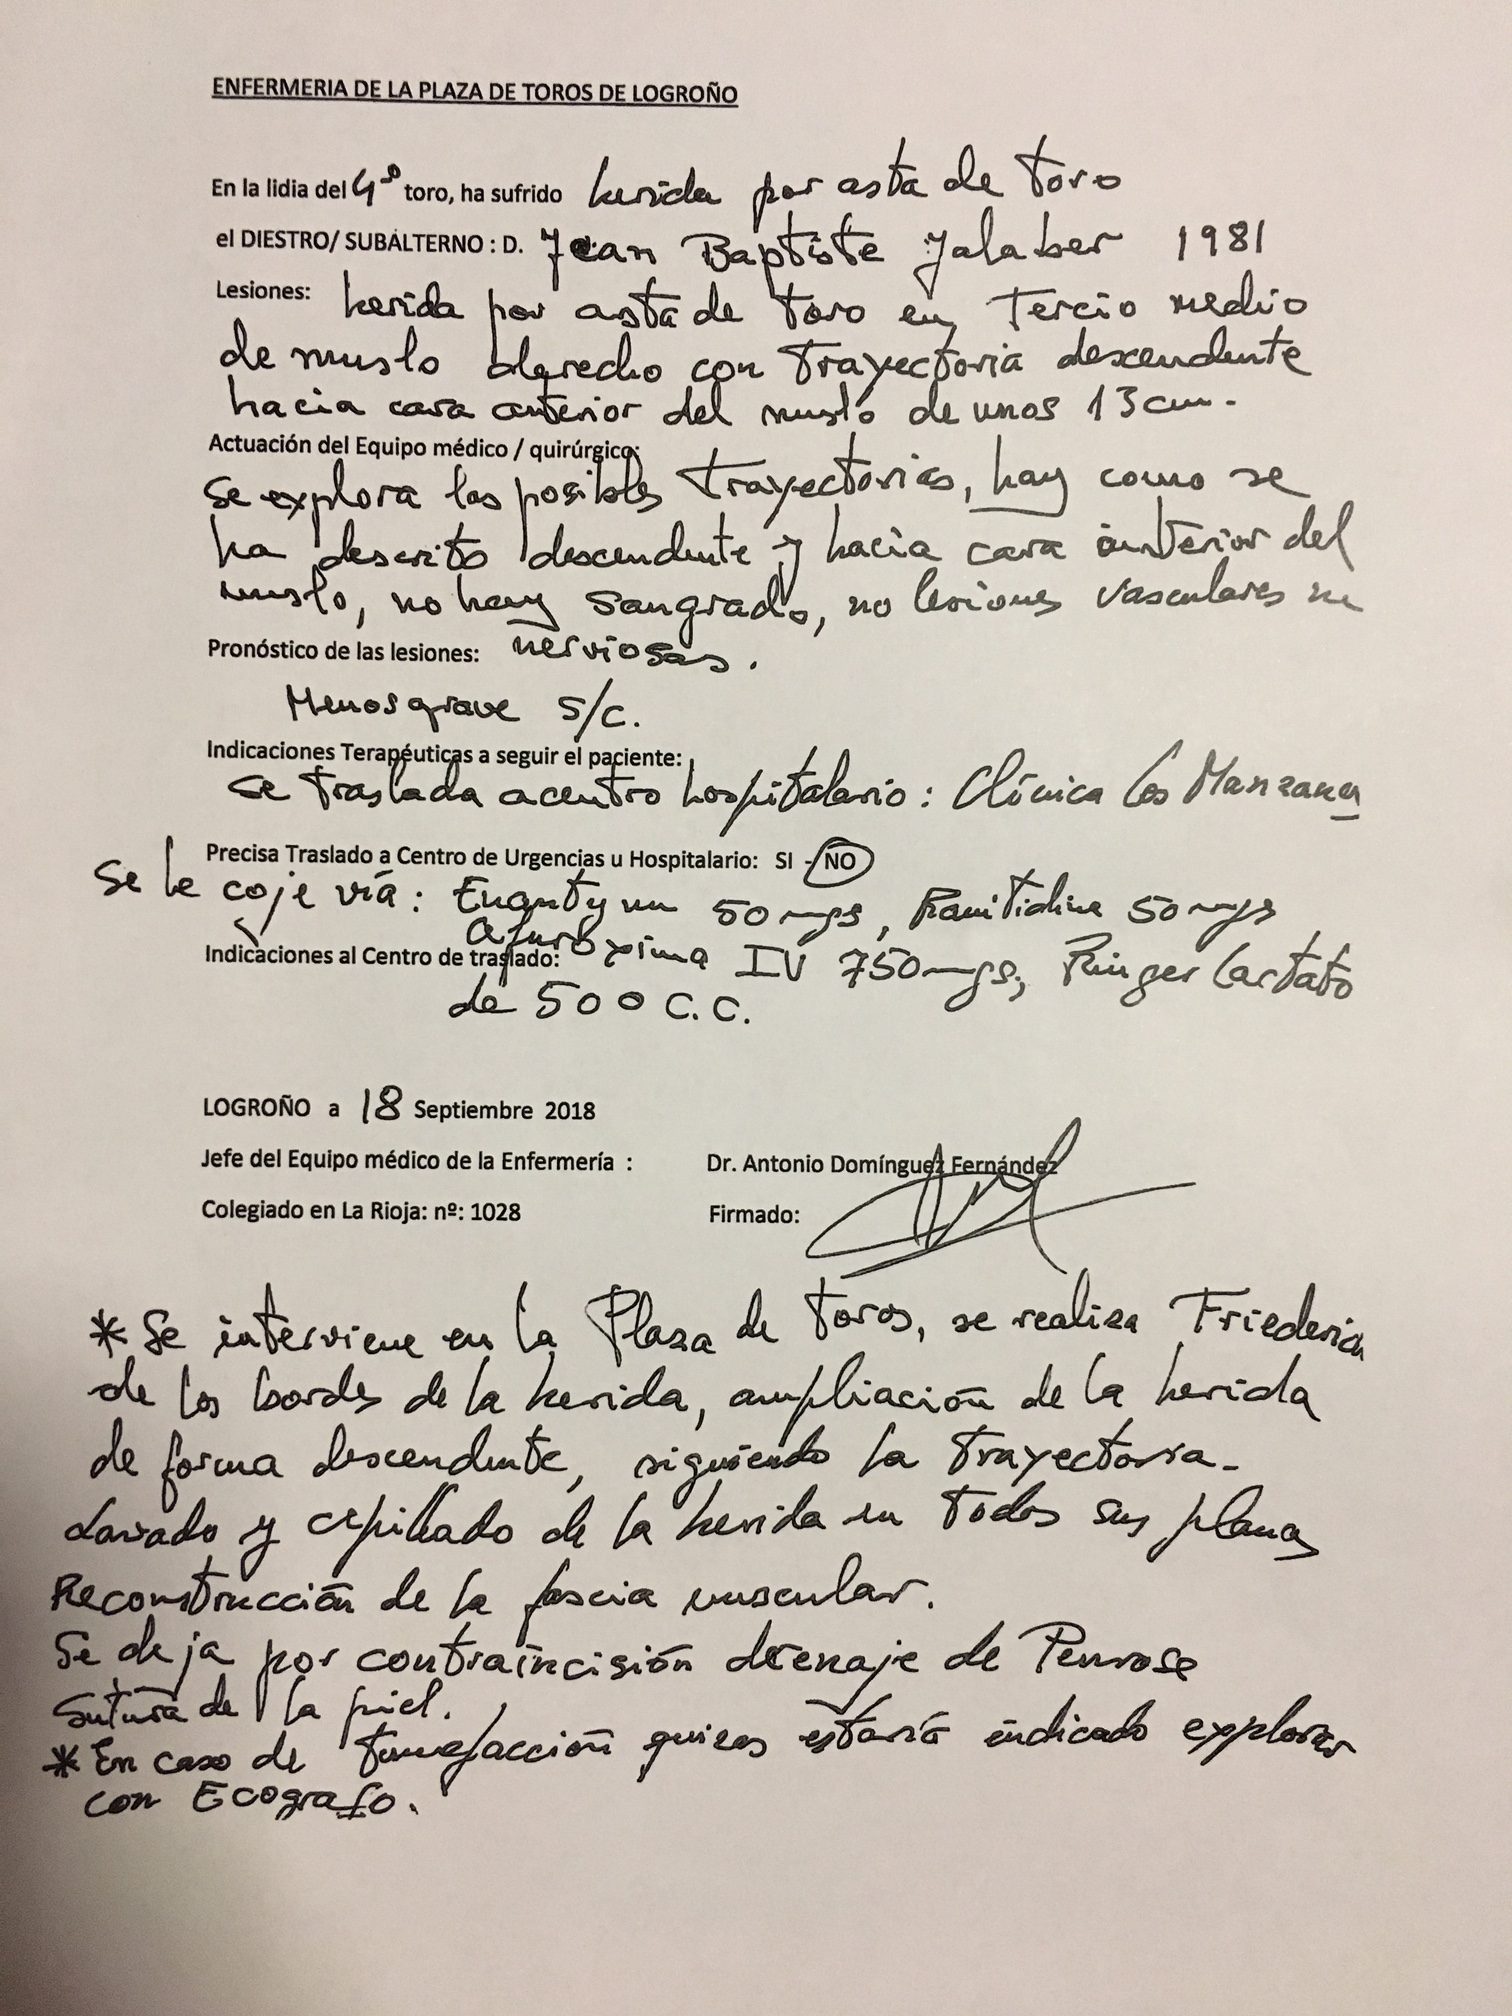 ENFERMERIA DE LA PLAZA DE TOROS DE LOGROÑO
En la lidia del 4º toro, ha sufrido herida por asta de toro
el DIESTRO/ SUBALTERNO : D. Jean Baptiste Jalaber 1981
Lesiones: herida por asta de toro en Tercio medio
de muslo derecho con Trayectoria descendente
hacia cara anterior del muslo de unos 13 cm.
Actuación del Equipo médico / quirúrgico:
Se explora las posibles Trayectorias, hay como se
ha descrito descendente y hacia cara anterior del
muslo, no hay sangrado, no lesiones vasculares ni
nerviosas.
Pronóstico de las lesiones:
Menos grave S/C.
Indicaciones Terapéuticas a seguir el paciente:
Se Traslada a centro hospitalario: Clínica Los Manzanos
Precisa Traslado a Centro de Urgencias u Hospitalario: SI - NO
Se le coje vía: Enantyum 50 mgs, Ranitidina 50 mgs
Indicaciones al Centro de traslado:
IV 750 mgs, Ringer Lactato
de 500 C.C.
LOGROÑO a 18 Septiembre 2018
Jefe del Equipo médico de la Enfermería : Dr. Antonio Domínguez Fernández
Colegiado en La Rioja: nº: 1028 Firmado:
* Se interviene en la Plaza de Toros, se realiza Friederich
de los bordes de la herida, ampliación de la herida
de forma descendente, siguiendo la Trayectoria.
Lavado y cepillado de la herida en Todos sus planos
Reconstrucción de la fascia muscular.
Se deja por contraincisión drenaje de Penrose
Sutura de la piel.
* En caso de tumefacción quizas estaría indicado explorar
con Ecografo.